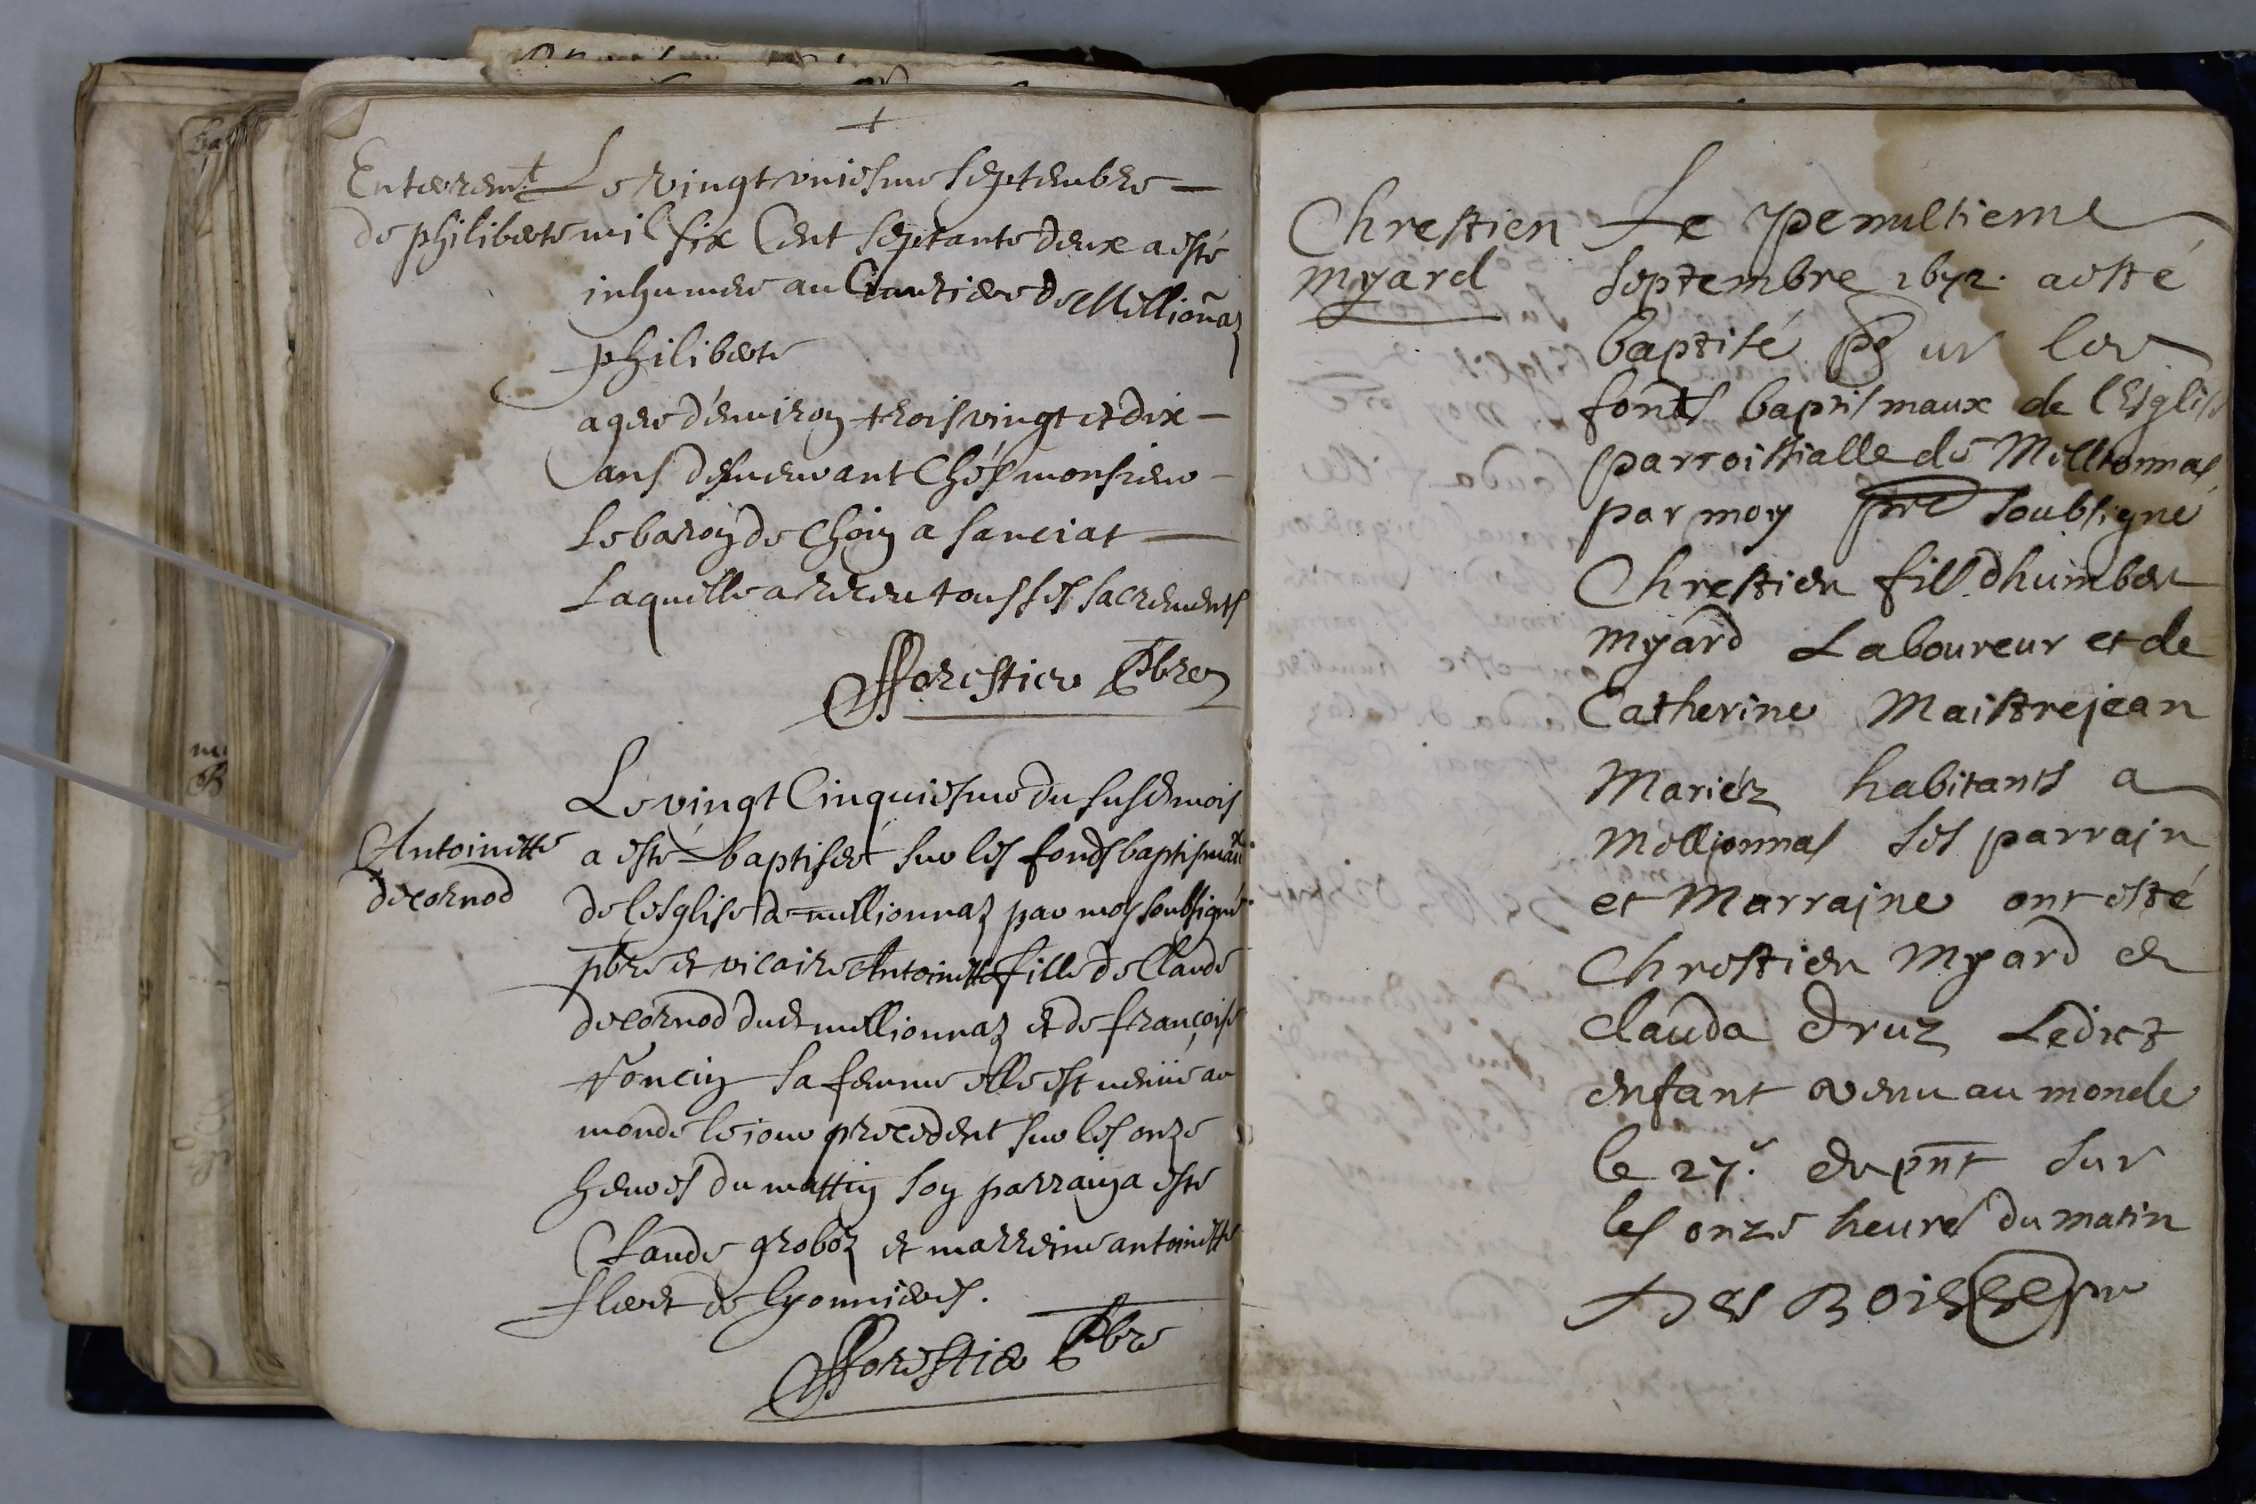 Enterem.t
de philiberte
Le vingt vniesme septembre
mil six Cent septante deux a esté
inhumee au Cimetiere de Mellioñaz
philiberte
agee d'enuiron trois vingt et dix
ans demeurant chés monsieur
le baron de choin a sanciat
Laquelle a receu tous ses sacrements
fforestier Pbre
Antoinette
decornod
Le vingt Cinquiesme du susd mois
a esté baptisee sur les fonds baptismaux
de lesglise de mellionnaz par moy soubsigné
pbre et vicaire Antoinette fille de Claude
decornod dud mellionnaz et de françoise
sa femme elle est venüe au
monde le jour precedent sur les onze
heures du mattin son parrain a esté
Claude groboz et marreine antoinette
de lyonnieres.
fforestier Pbre
Chrestien
Myard
Le penultieme
septembre 1672. a esté
baptisé sur les
fonts baptismaux de l'Esglise
parroissialle de Mellionnas
par moy pre soubsigné
Chrestien fils d'humbert
Myard Laboureur et de
Catherine Maistrejean
Mariéz habitants a
Mellionnas ses parrain
et Marraine ont esté
Chrestien Myard et
Clauda Druz Ledict
enfant venu au monde
le 27.e du pñt sur
les onze heures du matin